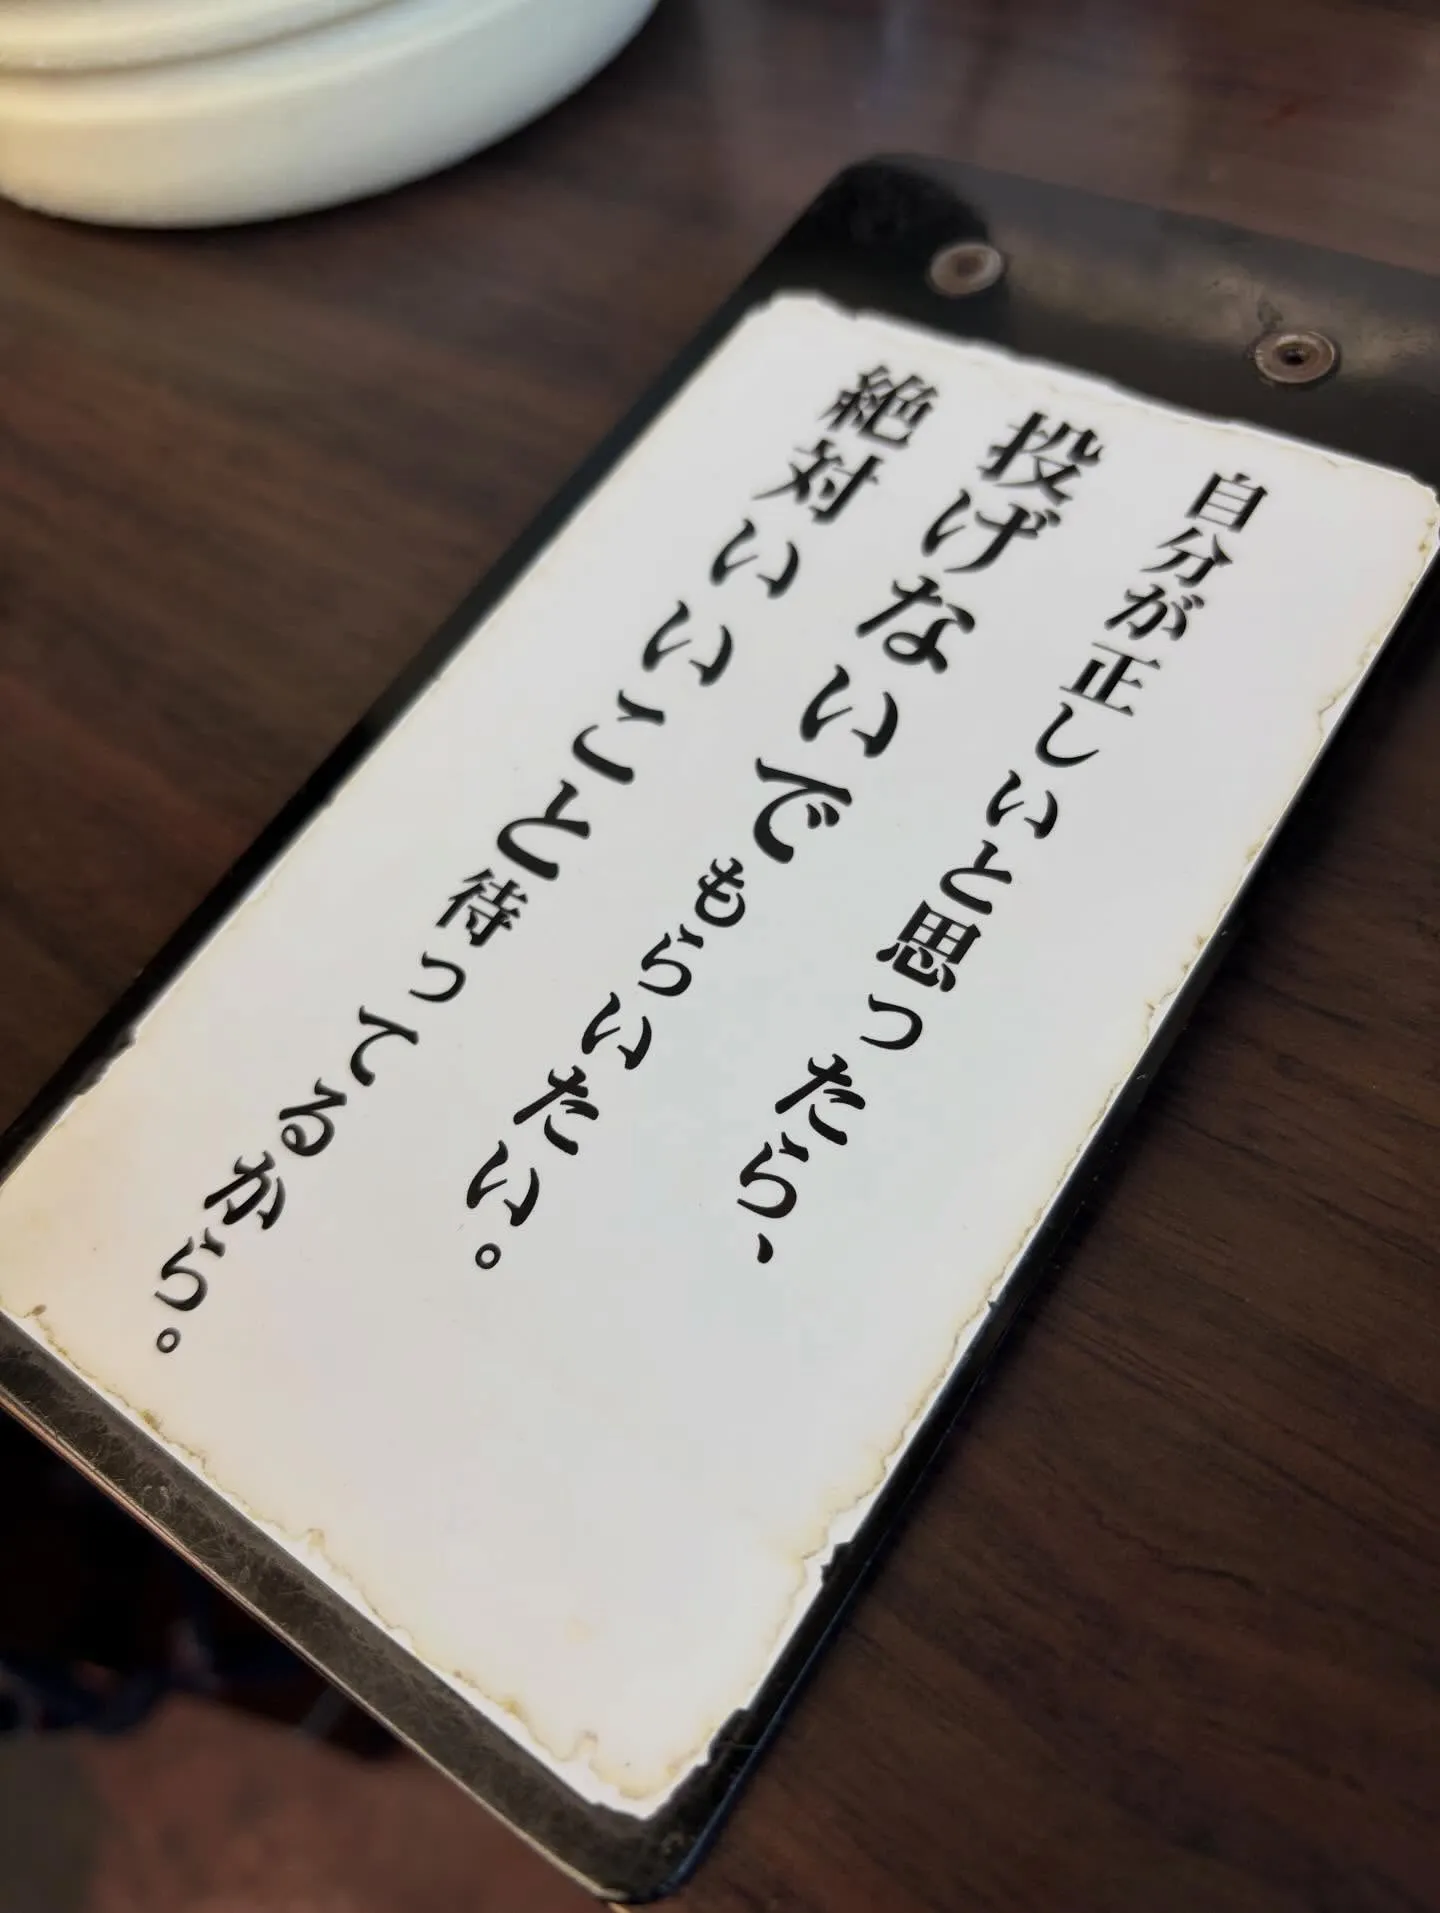 自分が正しいと思ったら、
投げないでもらいたい。
絶対いいこと待ってるから。